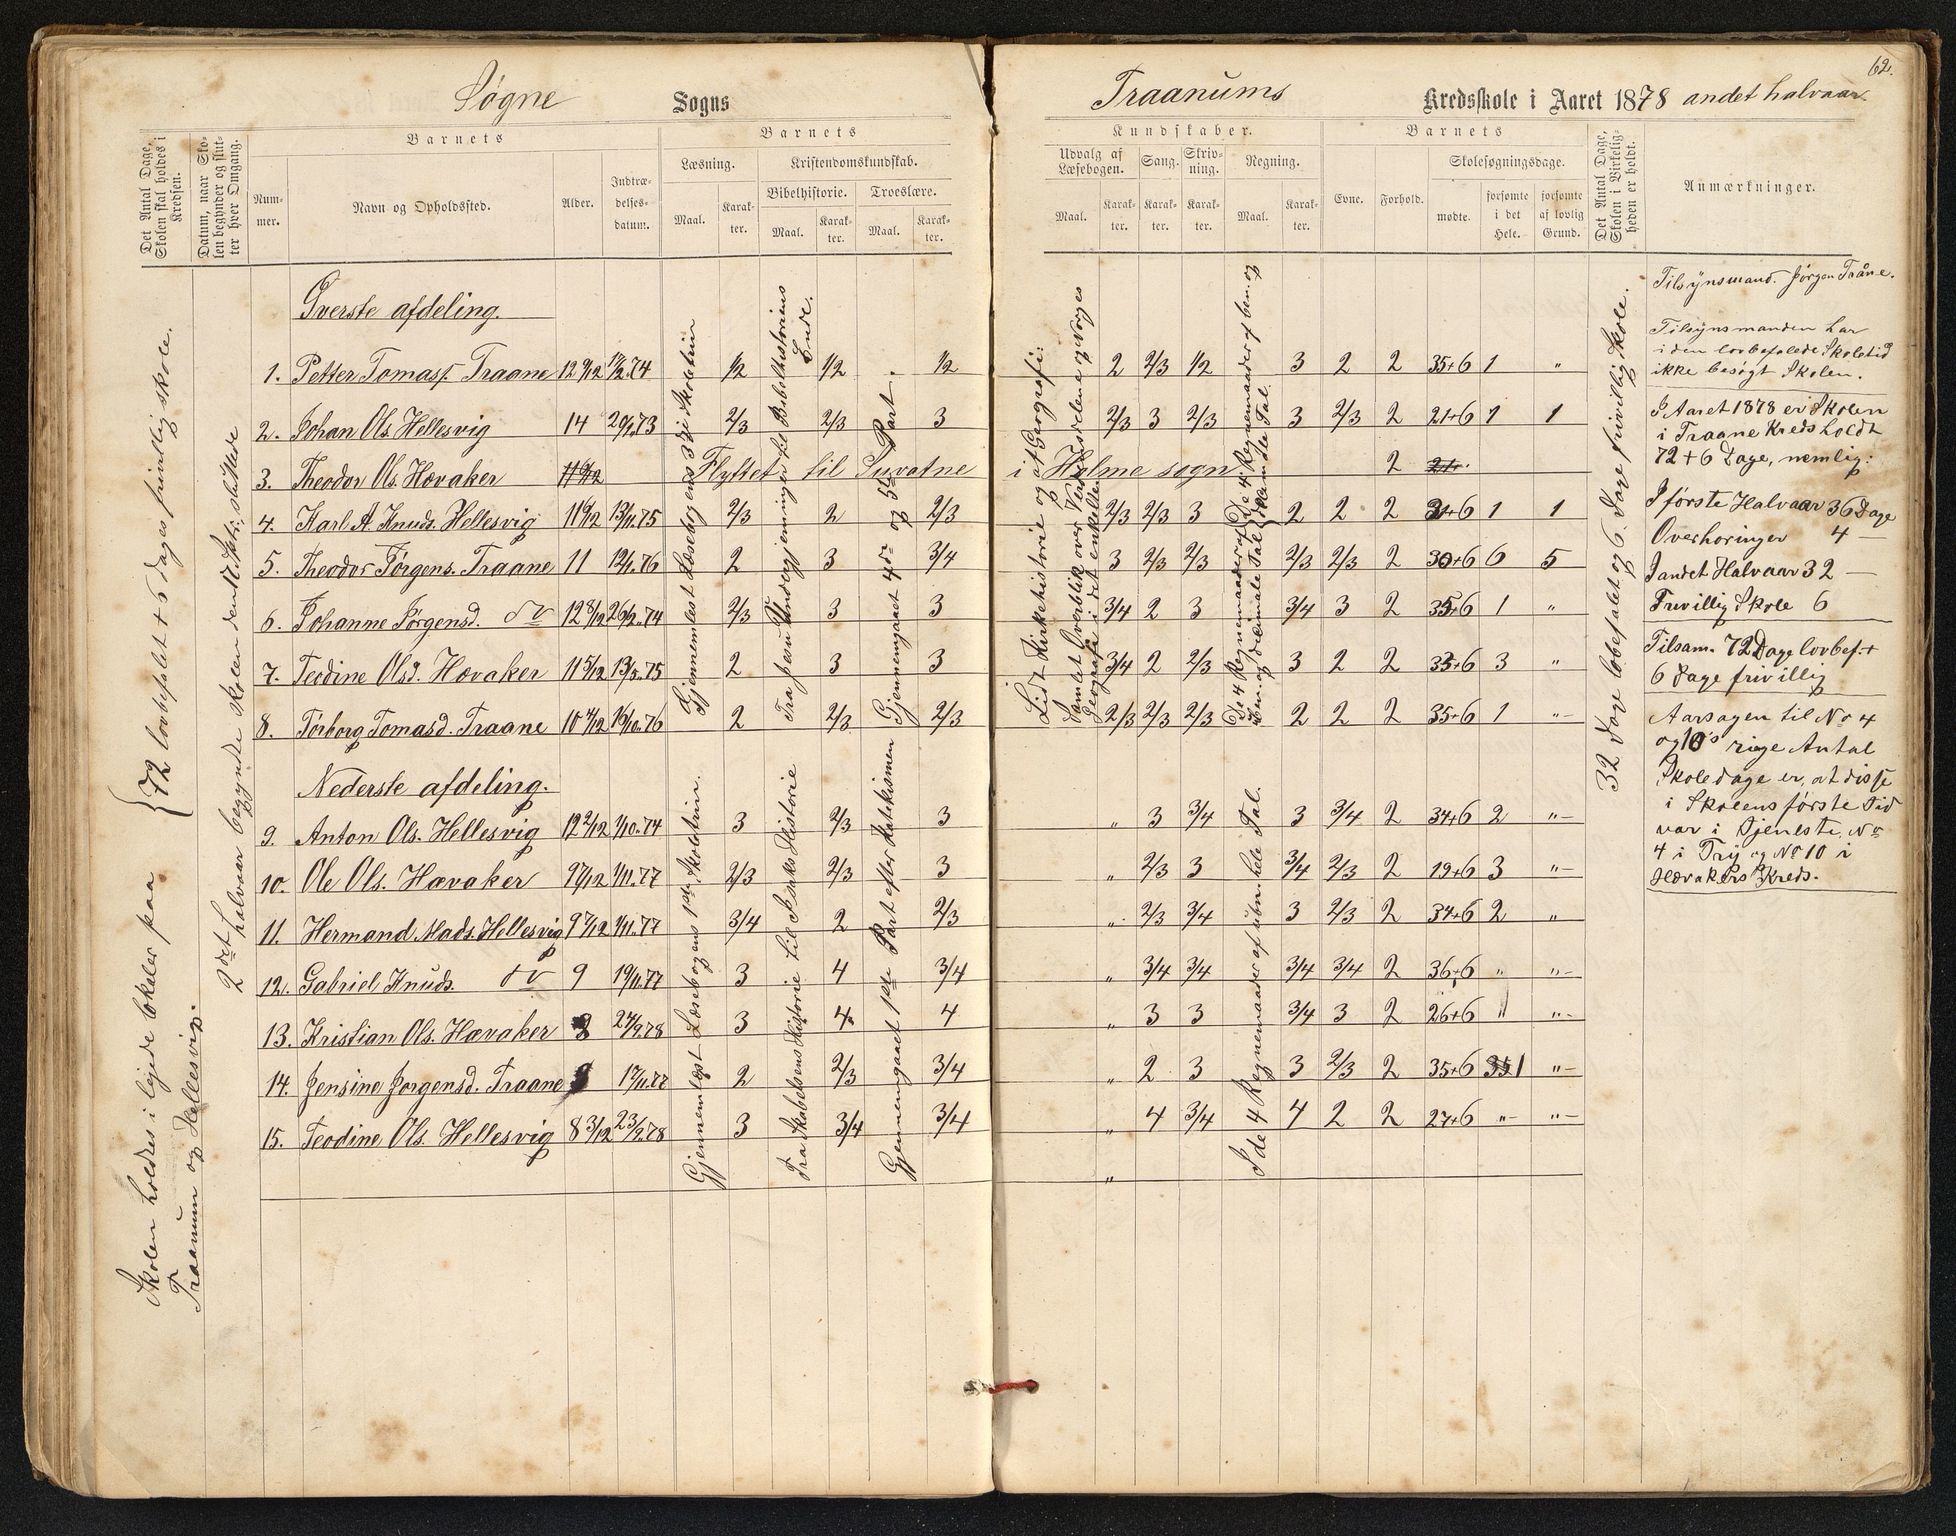 62.
Søgne Sogns Traanums Kredsskole i Aaret 1878 andet halvaar.
Det Antal Dage, Skolen skal holdes i Kredsen.
Datum, naar Skolen begynder og slutter hver Omgang.
Barnets
Nummer. Navn og Opholdssted. Alder. Indtrædelsesdatum.
Barnets
Læsning. Maal. Karakter.
Kristendomskundskab.
Bibelhistorie. Maal. Karakter.
Troeslære. Maal. Karakter.
Kundskaber.
Udvalg af Læsebogen. Maal. Karakter.
Sang. Karakter.
Skrivning. Karakter.
Regning. Maal. Karakter.
Barnets
Evne. Forhold.
Skolesøgningsdage.
mødte. forsømte i det Hele. forsømte af lovlig Grund.
Det Antal Dage, Skolen i Virkeligheden er holdt.
Anmærkninger.
Skolen holdes i lejede lokaler paa
Traanum og Hellesvig.
{72 lovbefalet + 6 dages frivillig skole.
2det halvaar begyndte skolen den sluttede
Øverste afdeling.
1. Petter Tomass. Traane 12 9/12 1/2 1/2 1/2 2 2/3 1/2 3 2 2 35+6 1 "
2. Johan Ols. Hellesvig 14 2/3 2/3 3 2/3 3 2/3 3 2/3 2 21+6 1 1
3. Theodor Ols. Hævaker Flyttet til i Holme sogn 2
4. Karl A. Knuds. Hellesvig 11 6/12 13/11.75 2/3 2 2/3 2/3 2/3 3 2 2 2 +6 1 1
5. Theodor Jørgens. Traane 11 12/1.76 2 3 3/4 3 2/3 2/3 2/3 2/3 2 30+6 6 5
6. Johanne Jørgensd. do 12 8/12 26/2.74 2/3 3 3 3/4 2 3 3/4 3 2 35+6 1 "
7. Teodine Olsd. Hævaker 11 5/12 13/3.75 2 3 3 3/4 2 2/3 3 2 2 33+6 3 "
8. Tørborg Tomasd. Traane 10 4/12 16/10.76 2 2/3 2/3 2/3 2/3 2/3 2 2 2 35+6 1 "
Nederste afdeling.
9. Anton Ols. Hellesvig 12 2/12 1/10.74 3 2/3 3 " 3 3/4 3 3/4 2 34+6 2 "
10. Ole Ols. Hævaker 9 7/12 1/11.77 2/3 2/3 3 " 2/3 3 3/4 2/3 2 19+6 3 "
11. Hermand Mads. Hellesvig 9 7/12 1/11.77 3/4 2 2/3 " 2/3 3/4 3 2/3 2 34+6 2 "
12. Gabriel Knuds. do 9 19/11.77 3 4 3/4 " 3/4 3/4 3/4 3/4 2 36+6 " "
13. Kristian Ols. Hævaker 8 24/9.78 3 4 4 " 3 3 3/4 3 2 26+6 " "
14. Jensine Jorgensd. Traane 17/11.77 2 2/3 3/4 " 2 3 3 2/3 2 35+6 1 "
15. Teodine Ols. Hellesvig 8 3/12 23/9.78 3 3/4 3/4 " 4 3/4 4 2 2 27+6 " "
"
Gjennemlæst Læsebogens 3die Skoletrin
Fra Jesu Undergjerninger til Bibelhistoriens Ende.
Gjennemgaaet 4de og 5te Part.
Lidt Kirkehistorie og af Geografi:
Samlet Overblik over Verdensdelene og Norges
Geografi i det enkelte.
De 4 Regnemaader af ben. og
Decimale Tal.
Gjennemlæst Læsebogens 1ste Skoletrin.
Fra Skabelsens Historie til Historie
Gjennemgaaet 1ste Part efter Katekismen
I de 4 Regnemaader af ubenn. hele Tal.
32 Dage lovbefalet og 6 Dage frivillig Skole.
Tilsynsmand. Jörgen Tråne.
Tilsynsmanden har
i den lovbefalede Skoletid
ikke besøgt Skolen.
I Aaret 1878 er Skolen
i Traane Kreds holdt
72 + 6 Dage, nemlig:
I første Halvaar 36 Dage
Overhøringer 4 —
I andet Halvaar 32 —
Frivillig Skole 6
Tilsam. 72 Dage lovbef. +
6 Dage frivillig
Aarsagen til No 4
og 10's ringe Antal
Skoledage er, at disse
i Skolens første Tid
var i Tjeneste, No
4 i Try og No 10 i
Hævakers Kreds.